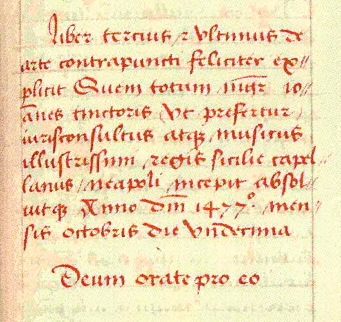 Liber tercius & ultimus de
arte contrapuncti feliciter ex//
plicit Quem totum mgr̄ io//
ānes tinctoris (ut prefertur)
iurisconsultus atqȝ musicus
illustrissimi regis sicilie capel//
lanus / neapoli incepit absol//
uitqȝ Anno Dm̄ 1477º men//
sis octobris die undecima
Deum orate pro eo